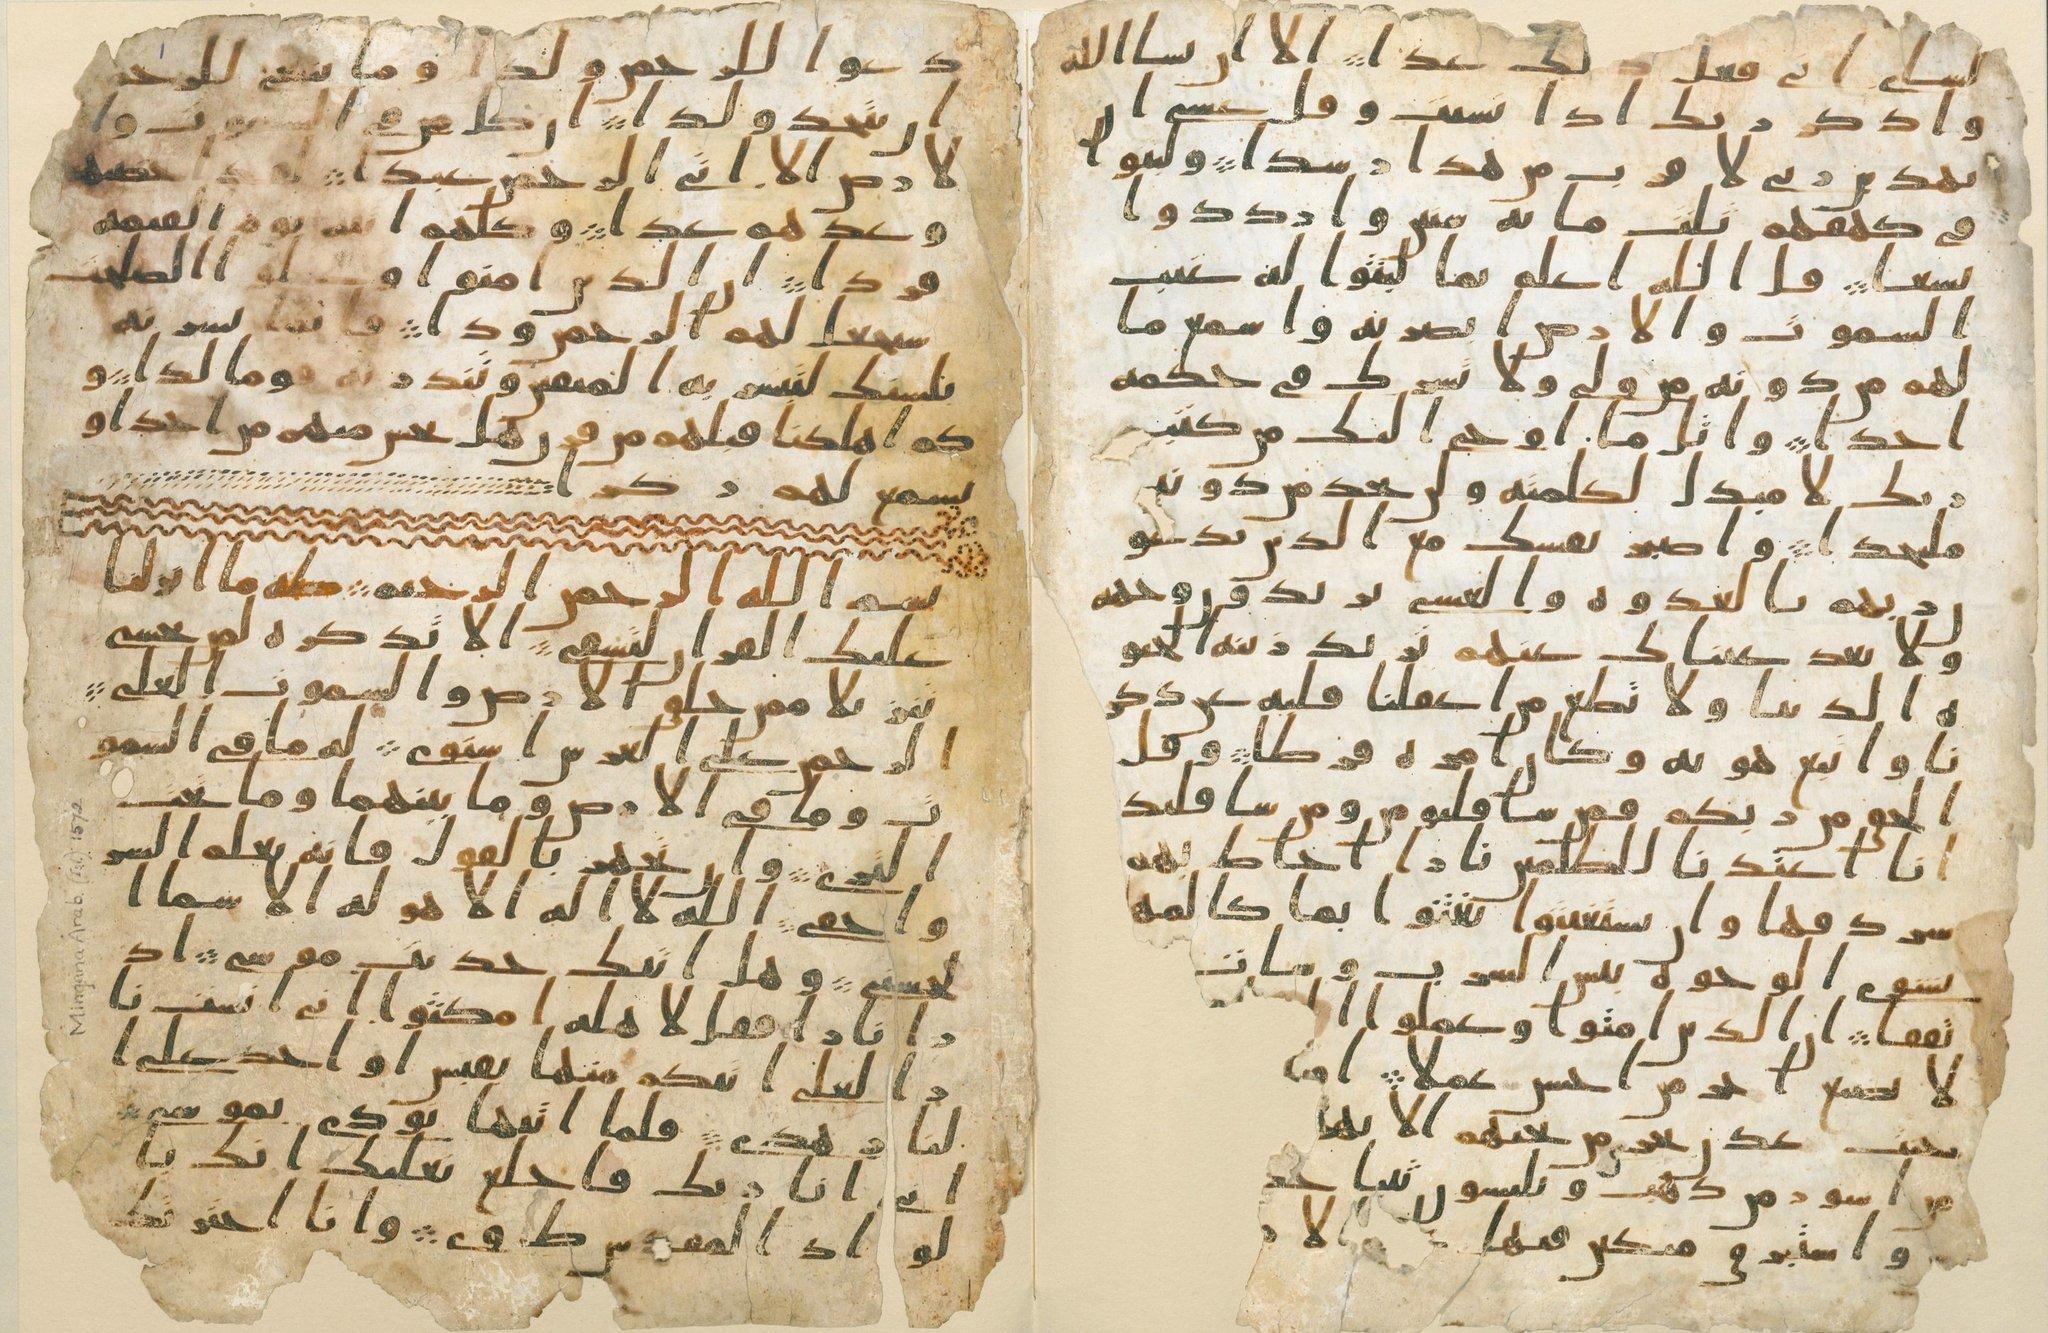 لشاى انى فعل ذلک غدا الا ان يشا الله
واذكر ربک اذا نسيت وقل عسى ا
يهدين ربى لاقرب من هذا رشدا ولبثوا
فى كهفهم ثلث مايه سنين وازدادوا
تسعا قل الله اعلم بما لبثوا له غيب
السموت والارض ابصر به واسمع ما
لهم من دونه من ولى ولا تشرک فى حكمه
احدا واتل ما اوحى اليک من كتب
ربک لا مبدل لكلمته ولن تجد من دونه
ملتحدا واصبر نفسک مع الذين يدعو
ن ربهم بالغدوه والعشى يريدون وجهه
ولا تعد عيناک عنهم تريد زينه الحيو
ه الدنيا ولا تطع من اغفلنا قلبه عن ذكر
نا واتبع هويه وكان امره فرطا وقل
الحق من ربكم فمن شا فليومن ومن شا فليكفر
انا اعتدنا للظلمين نارا احاط بهم
سردقها وان يستغيثوا يغثوا بما كالمه
يشوى الوجوه بيس الشرب وسات
تفقا ان الذين امنوا وعملوا ا
لا نضيع اجر من احسن عملا
جنت عدن تجرى من تحتهم الانها
من اسور من ذهب ويلبسون ثيابا خـ
واستبرق متكين فيها الار
دعوا للرحمن ولدا وما ينبغى للرحمـ
ان يتخذ ولدا ان كل من فى السموت وا
لارض الا اتى الرحمن عبدا لقد احصيهم
وعدهم عدا وكلهم اتيه يوم القيمه
فردا ان الذين امنوا وعملوا الصلحت
سيجعل لهم الرحمن ودا فانما يسرنه
بلسنک لتبشر به المتقين وتنذر به قوما لدا و
كم اهلكنا قبلهم من قرن هل تحس منهم من احد او
تسمع لهم ركزا
بسم الله الرحمن الرحيم طه ما انزلنا
عليک القران لتشقى الا تذكره لمن يخشى
تنزيلا ممن خلق الارض والسموت العلى
الرحمن على العرش استوى له ما فى السمو
ت وما فى الارض وما بينهما وما تحت
الثرى وان تجهر بالقول فانه يعلم السر
واخفى الله لا اله الا هو له الاسما ا
لحسنى وهل اتيک حديث موسى اذ
را نارا فقال لاهله امكثوا انى انست نا
را لعلى اتيكم منها بقبس او اجد على ا
لنار هدى فلما اتيها نودى يموسى
انى انا ربک فاخلع نعليک انک با
لواد المقدس طوى وانا اخترتک
Mingana Arab. (Isl.) 1572